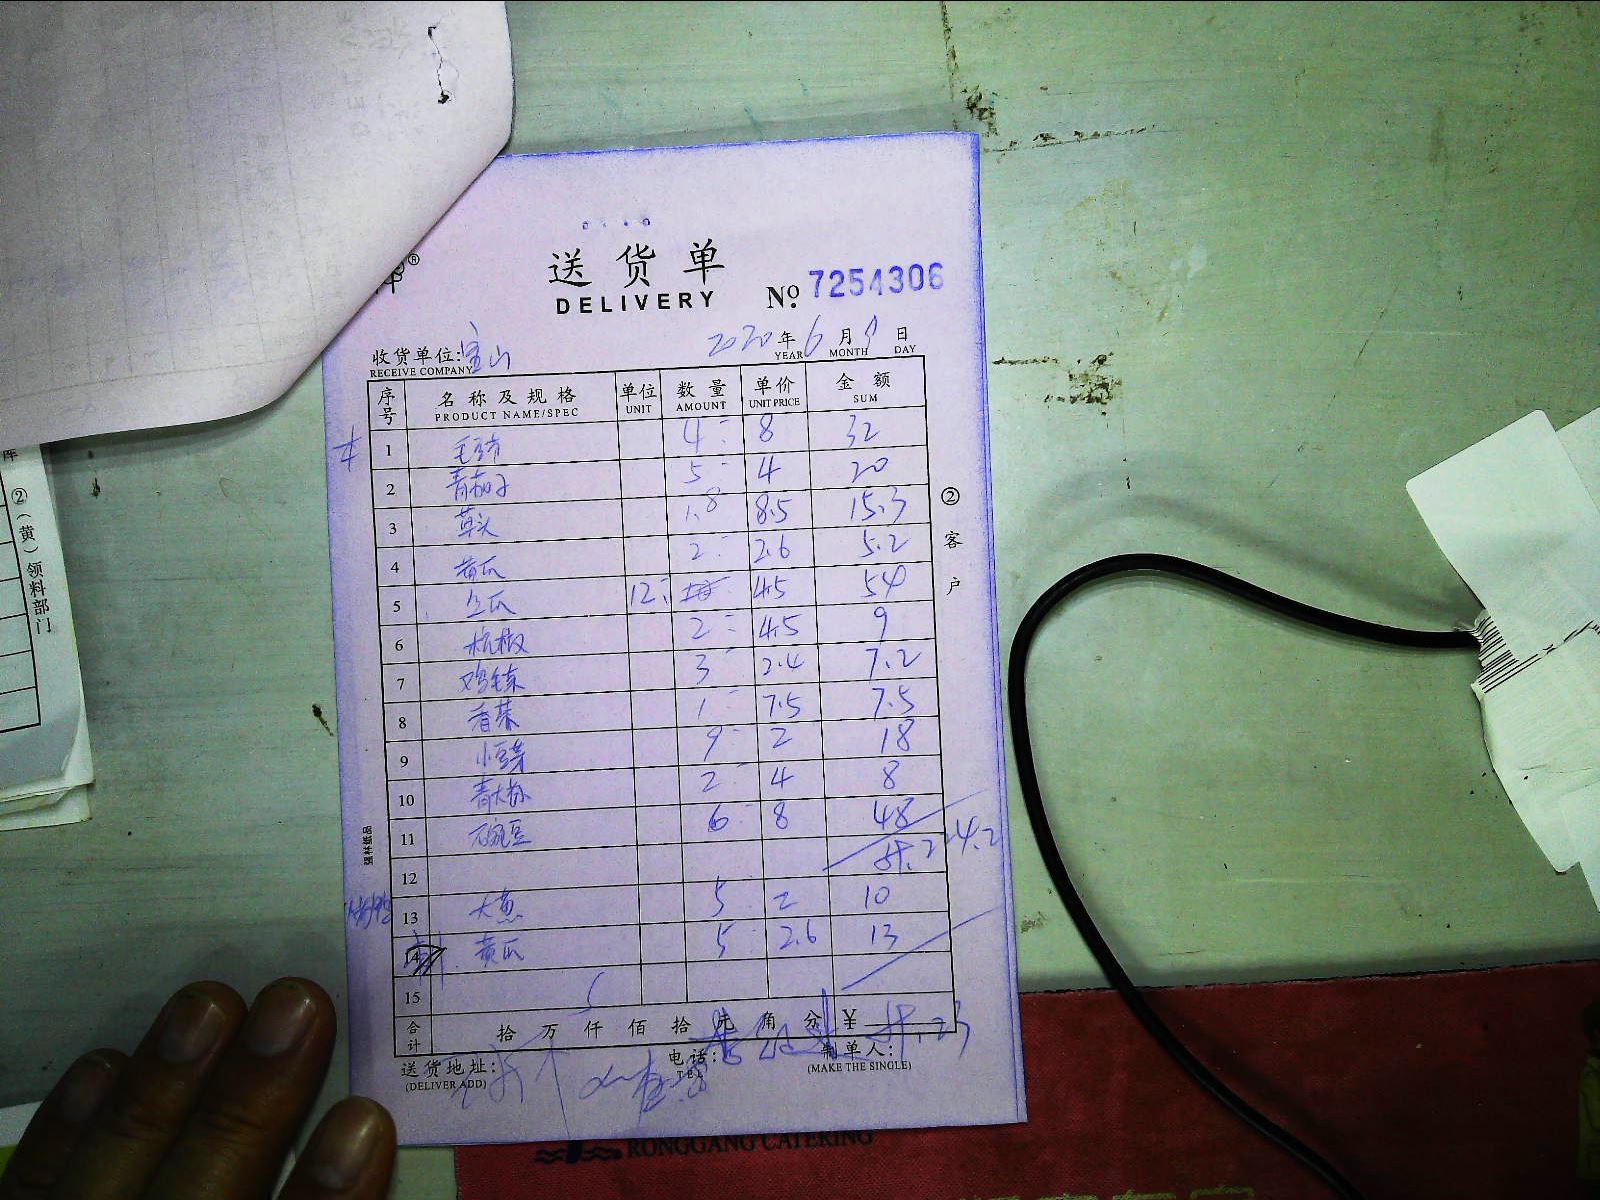 送货单
DELIVERY
No. 7254306
收货单位: 宝山
RECEIVE COMPANY
2020 年 6 月 9 日
YEAR MONTH DAY
序号 名称及规格 单位 数量 单价 金额
PRODUCT NAME/SPEC UNIT AMOUNT UNIT PRICE SUM
1 毛豆节 4 8 32
2 青茄子 5 4 20
3 草头 1.8 8.5 15.3
4 黄瓜 2 2.6 5.2
5 12 4.5 54
6 杭椒 2 4.5 9
7 鸡毛菜 3 2.4 7.2
8 香菜 1 7.5 7.5
9 小豆芽 9 2 18
10 青大椒 2 4 8
11 豌豆 6 8 48
12 224.2
13 大葱 5 2 10
14 黄瓜 5 2.6 13
15
合计 拾 万 仟 佰 拾 元 角 分 ¥ 23
送货地址: 电话: 制单人:
(DELIVER ADD) TEL (MAKE THE SINGLE)
② 客户
强林纸品
库 ②(黄)领料部门
RONGGANG CATERING